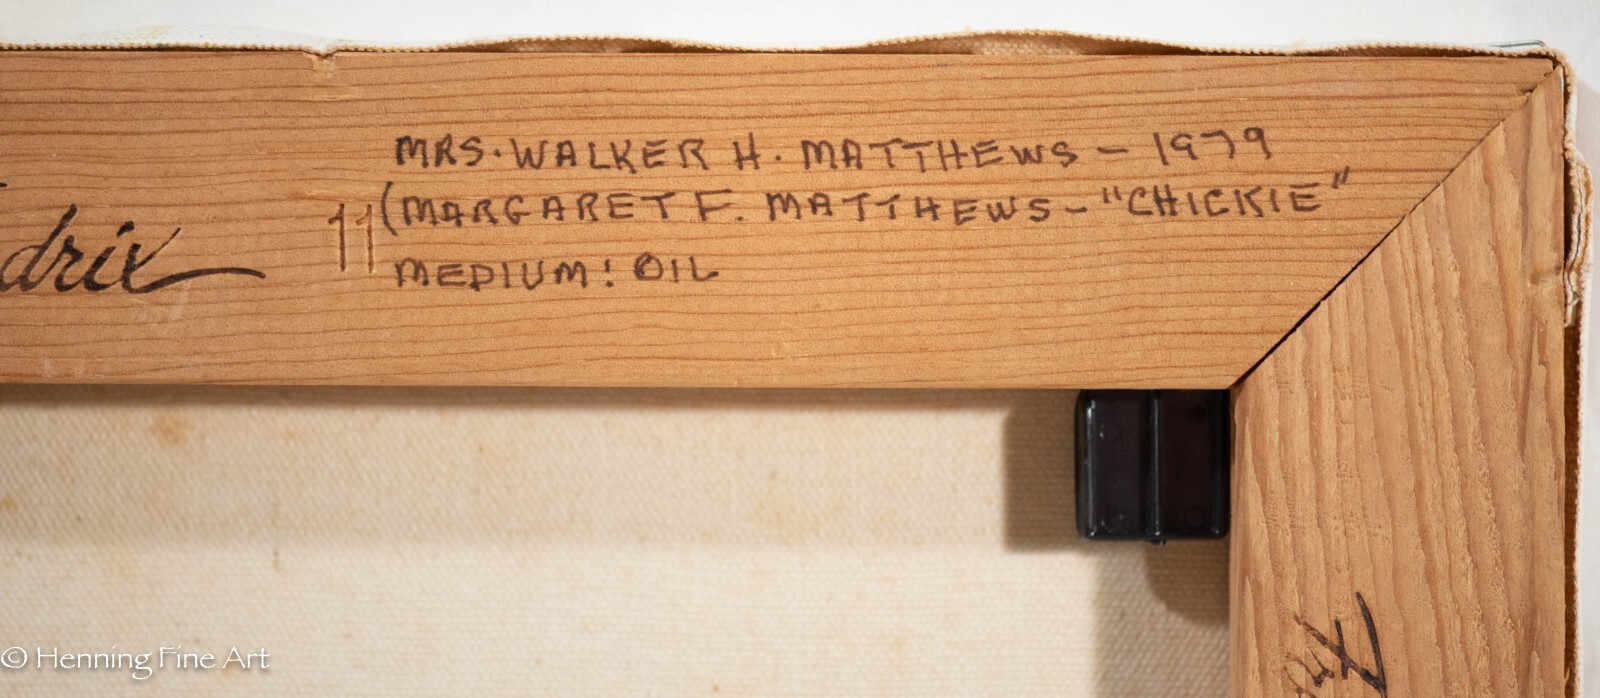 MRS. WALKER H. MATTHEWS – 1979
(MARGARET F. MATTHEWS – "CHICKIE"
MEDIUM: OIL
drix
11
© Henning Fine Art